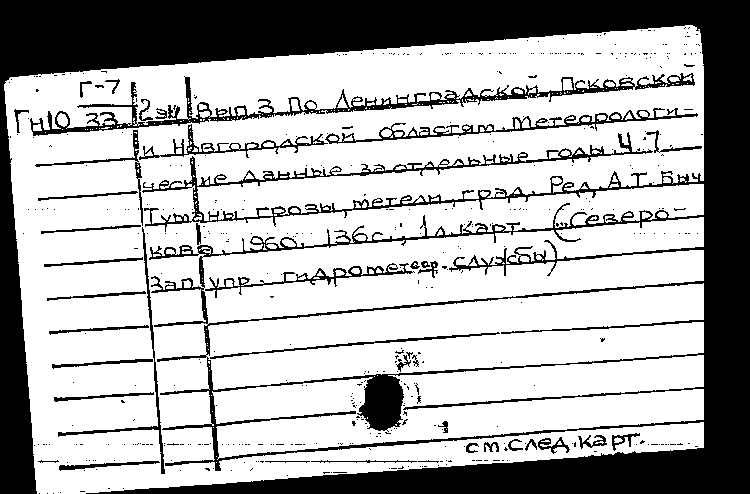 Г-7
Гн10 33 2эк Вып.3 По Ленинградской, Псковской
и Новгородской областям. Метеорологи-
ческие данные за отдельные годы. Ч.7.
Туманы, грозы, метели, град. Ред. А.Т. Быч
кова. 1960. 136с.; 1л.карт. (...Северо-
Зап упр. гидрометеор. службы).
см.след.карт.